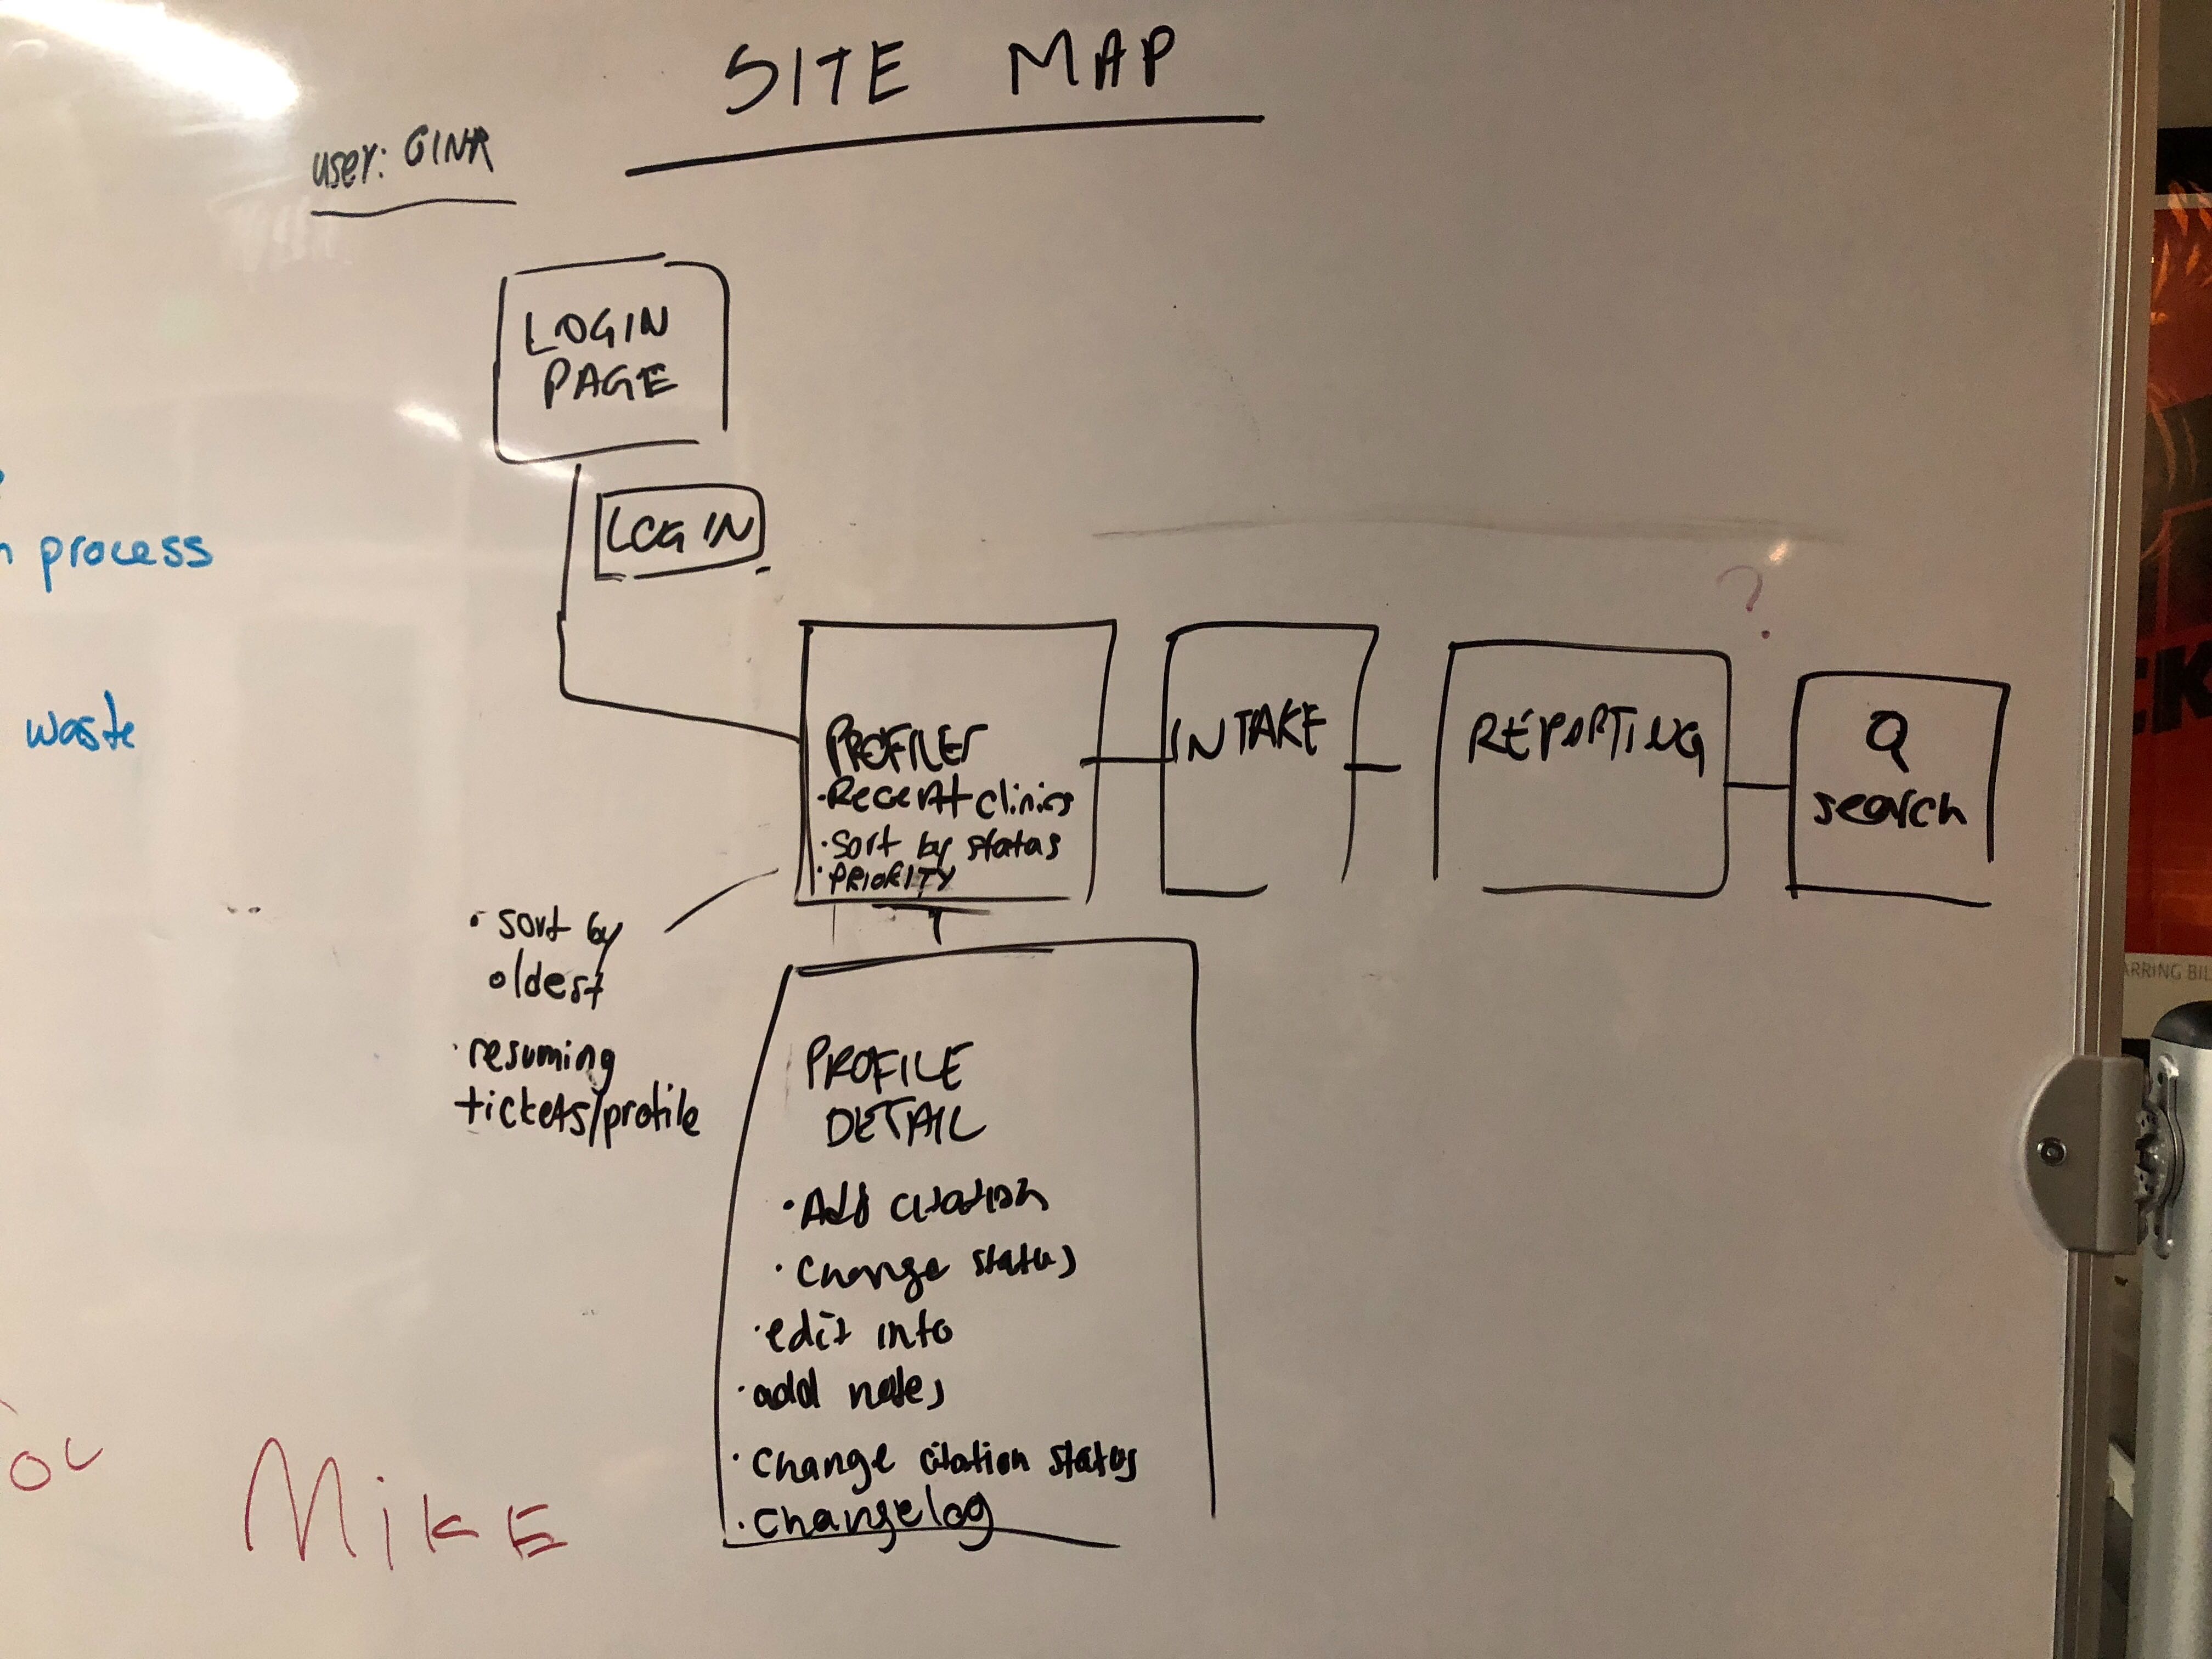 SITE MAP
user: GINA
LOGIN
PAGE
LOGIN
process
waste
?
PROFILES
• Recent clinics
• Sort by status
• PRIORITY
INTAKE
REPORTING
search
• sort by
oldest
• resuming
tickets/profile
PROFILE
DETAIL
• Add citation
• Change status
• edit info
• add notes
• Change citation status
• Changelog
MikE
CK
ARRING BIL